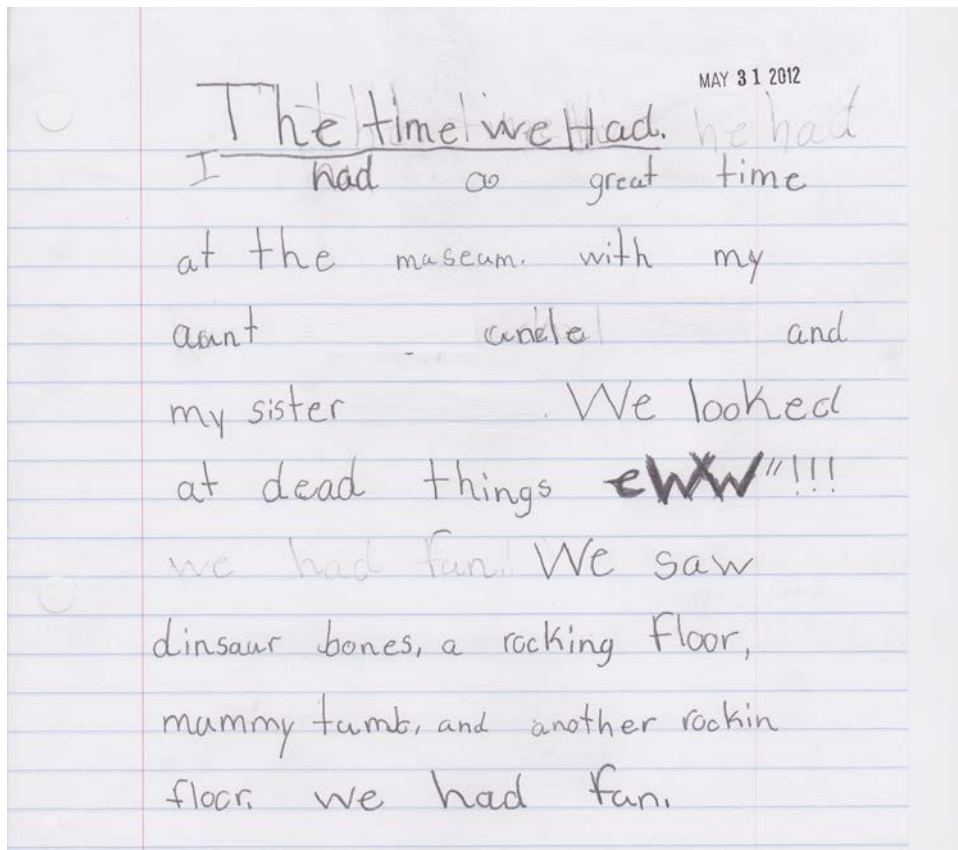 MAY 31 2012
The time we Had. he had
I had a great time
at the museum. with my
aunt uncle and
my sister . We looked
at dead things eWW"!!!
we had fun! We saw
dinsaur bones, a rocking floor,
mummy tumb, and another rockin
floor. we had fun.